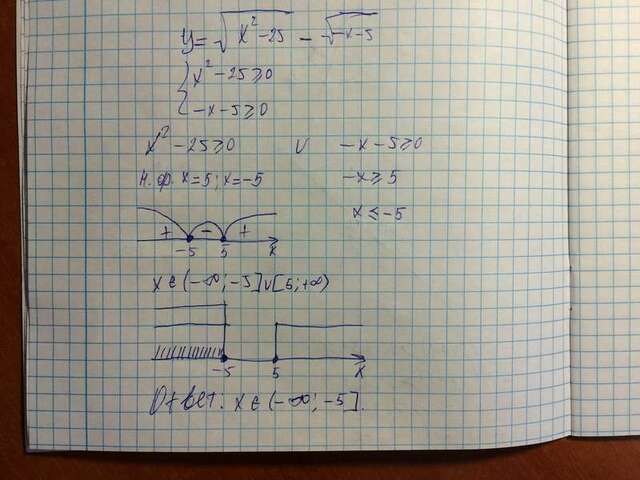 y = √x² - 25 - √-x - 5
{ x² - 25 ≥ 0
-x - 5 ≥ 0
x² - 25 ≥ 0 и -x - 5 ≥ 0
н.ф. x = 5; x = -5 -x ≥ 5
x ≤ -5
+ - +
-5 5 x
x ∈ (-∞; -5] ∪ [5; +∞)
-5 5 x
Ответ: x ∈ (-∞; -5].